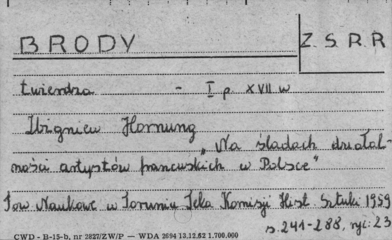 BRODY Z.S.R.R
twierdza - I p. XVII w
Zbigniew Hornung
„Na śladach działal-
ności artystów francuskich w Polsce"
Tow Naukowe w Toruniu Teka Komisji Hist. Sztuki 1959
s. 241-288, ryc. 23
CWD - B-15-b, nr 2827/ZW/P — WDA 2694 13.12.62 1.700.000